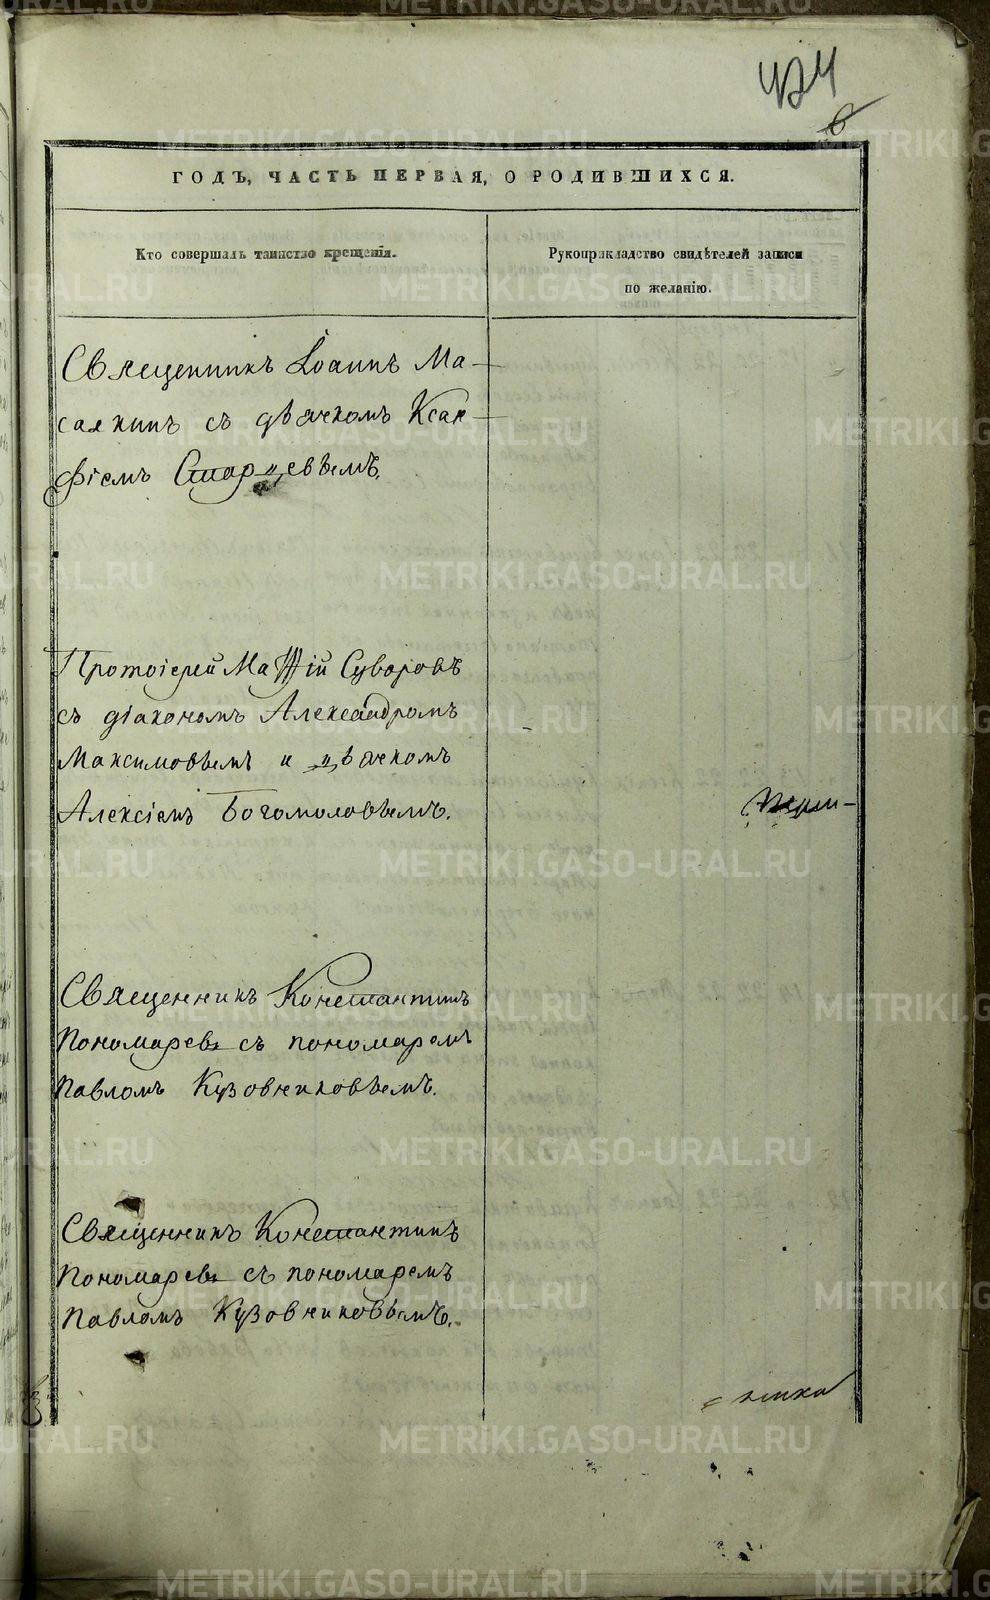 424
6
ГОДЪ, ЧАСТЬ ПЕРВАЯ, О РОДИВШИХСЯ.
Кто совершалъ таинство крещенія.
Рукоприкладство свидѣтелей записи
по желанію.
Священникъ Іоаннъ Ма-
салкинъ съ дьячкомъ Ксан-
фіемъ Старцевымъ.
Протоіерей Матѳій Суворовъ
съ діакономъ Александромъ
Максимовымъ и дьячкомъ
Алексіемъ Богомоловымъ.
Священникъ Константинъ
Пономаревъ съ пономаремъ
Павломъ Кузовниковымъ.
Священникъ Константинъ
Пономаревъ съ пономаремъ
Павломъ Кузовниковымъ.
METRIKI.GASO-URAL.RU